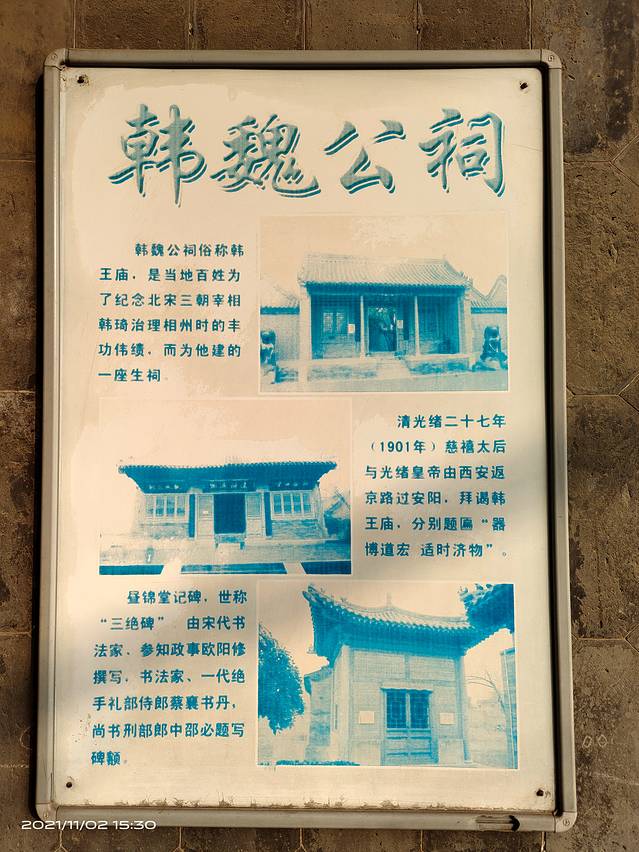 韩魏公祠
韩魏公祠俗称韩
王庙，是当地百姓为
了纪念北宋三朝宰相
韩琦治理相州时的丰
功伟绩，而为他建的
一座生祠
清光绪二十七年
（1901年）慈禧太后
与光绪皇帝由西安返
京路过安阳，拜谒韩
王庙，分别题匾“器
博道宏 适时济物”。
昼锦堂记碑，世称
“三绝碑” 由宋代书
法家、参知政事欧阳修
撰写，书法家、一代绝
手礼部侍郎蔡襄书丹，
尚书刑部郎中邵必题写
碑额。
2021/11/02 15:30